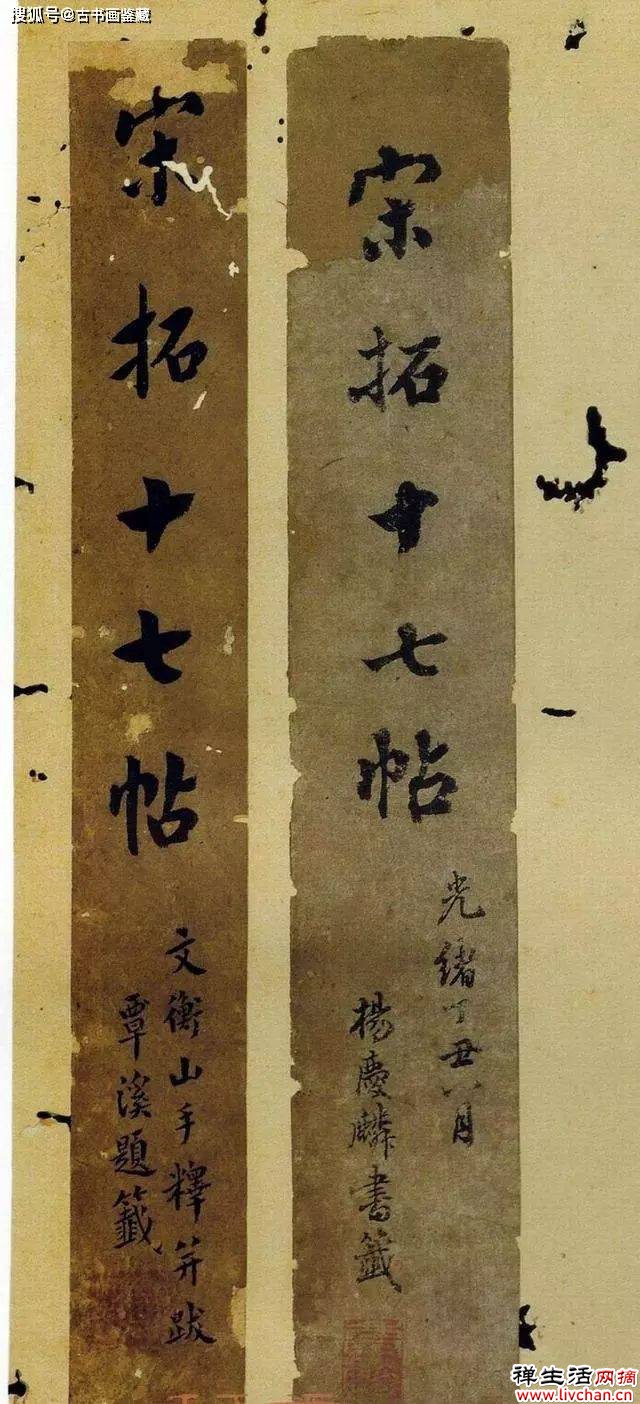 搜狐号@古书画鉴藏
宋拓十七帖
光緒丁丑八月
楊慶麟書籤
宋拓十七帖
文衡山手釋并跋
覃溪題籤
禅生活网摘
www.livchan.cn